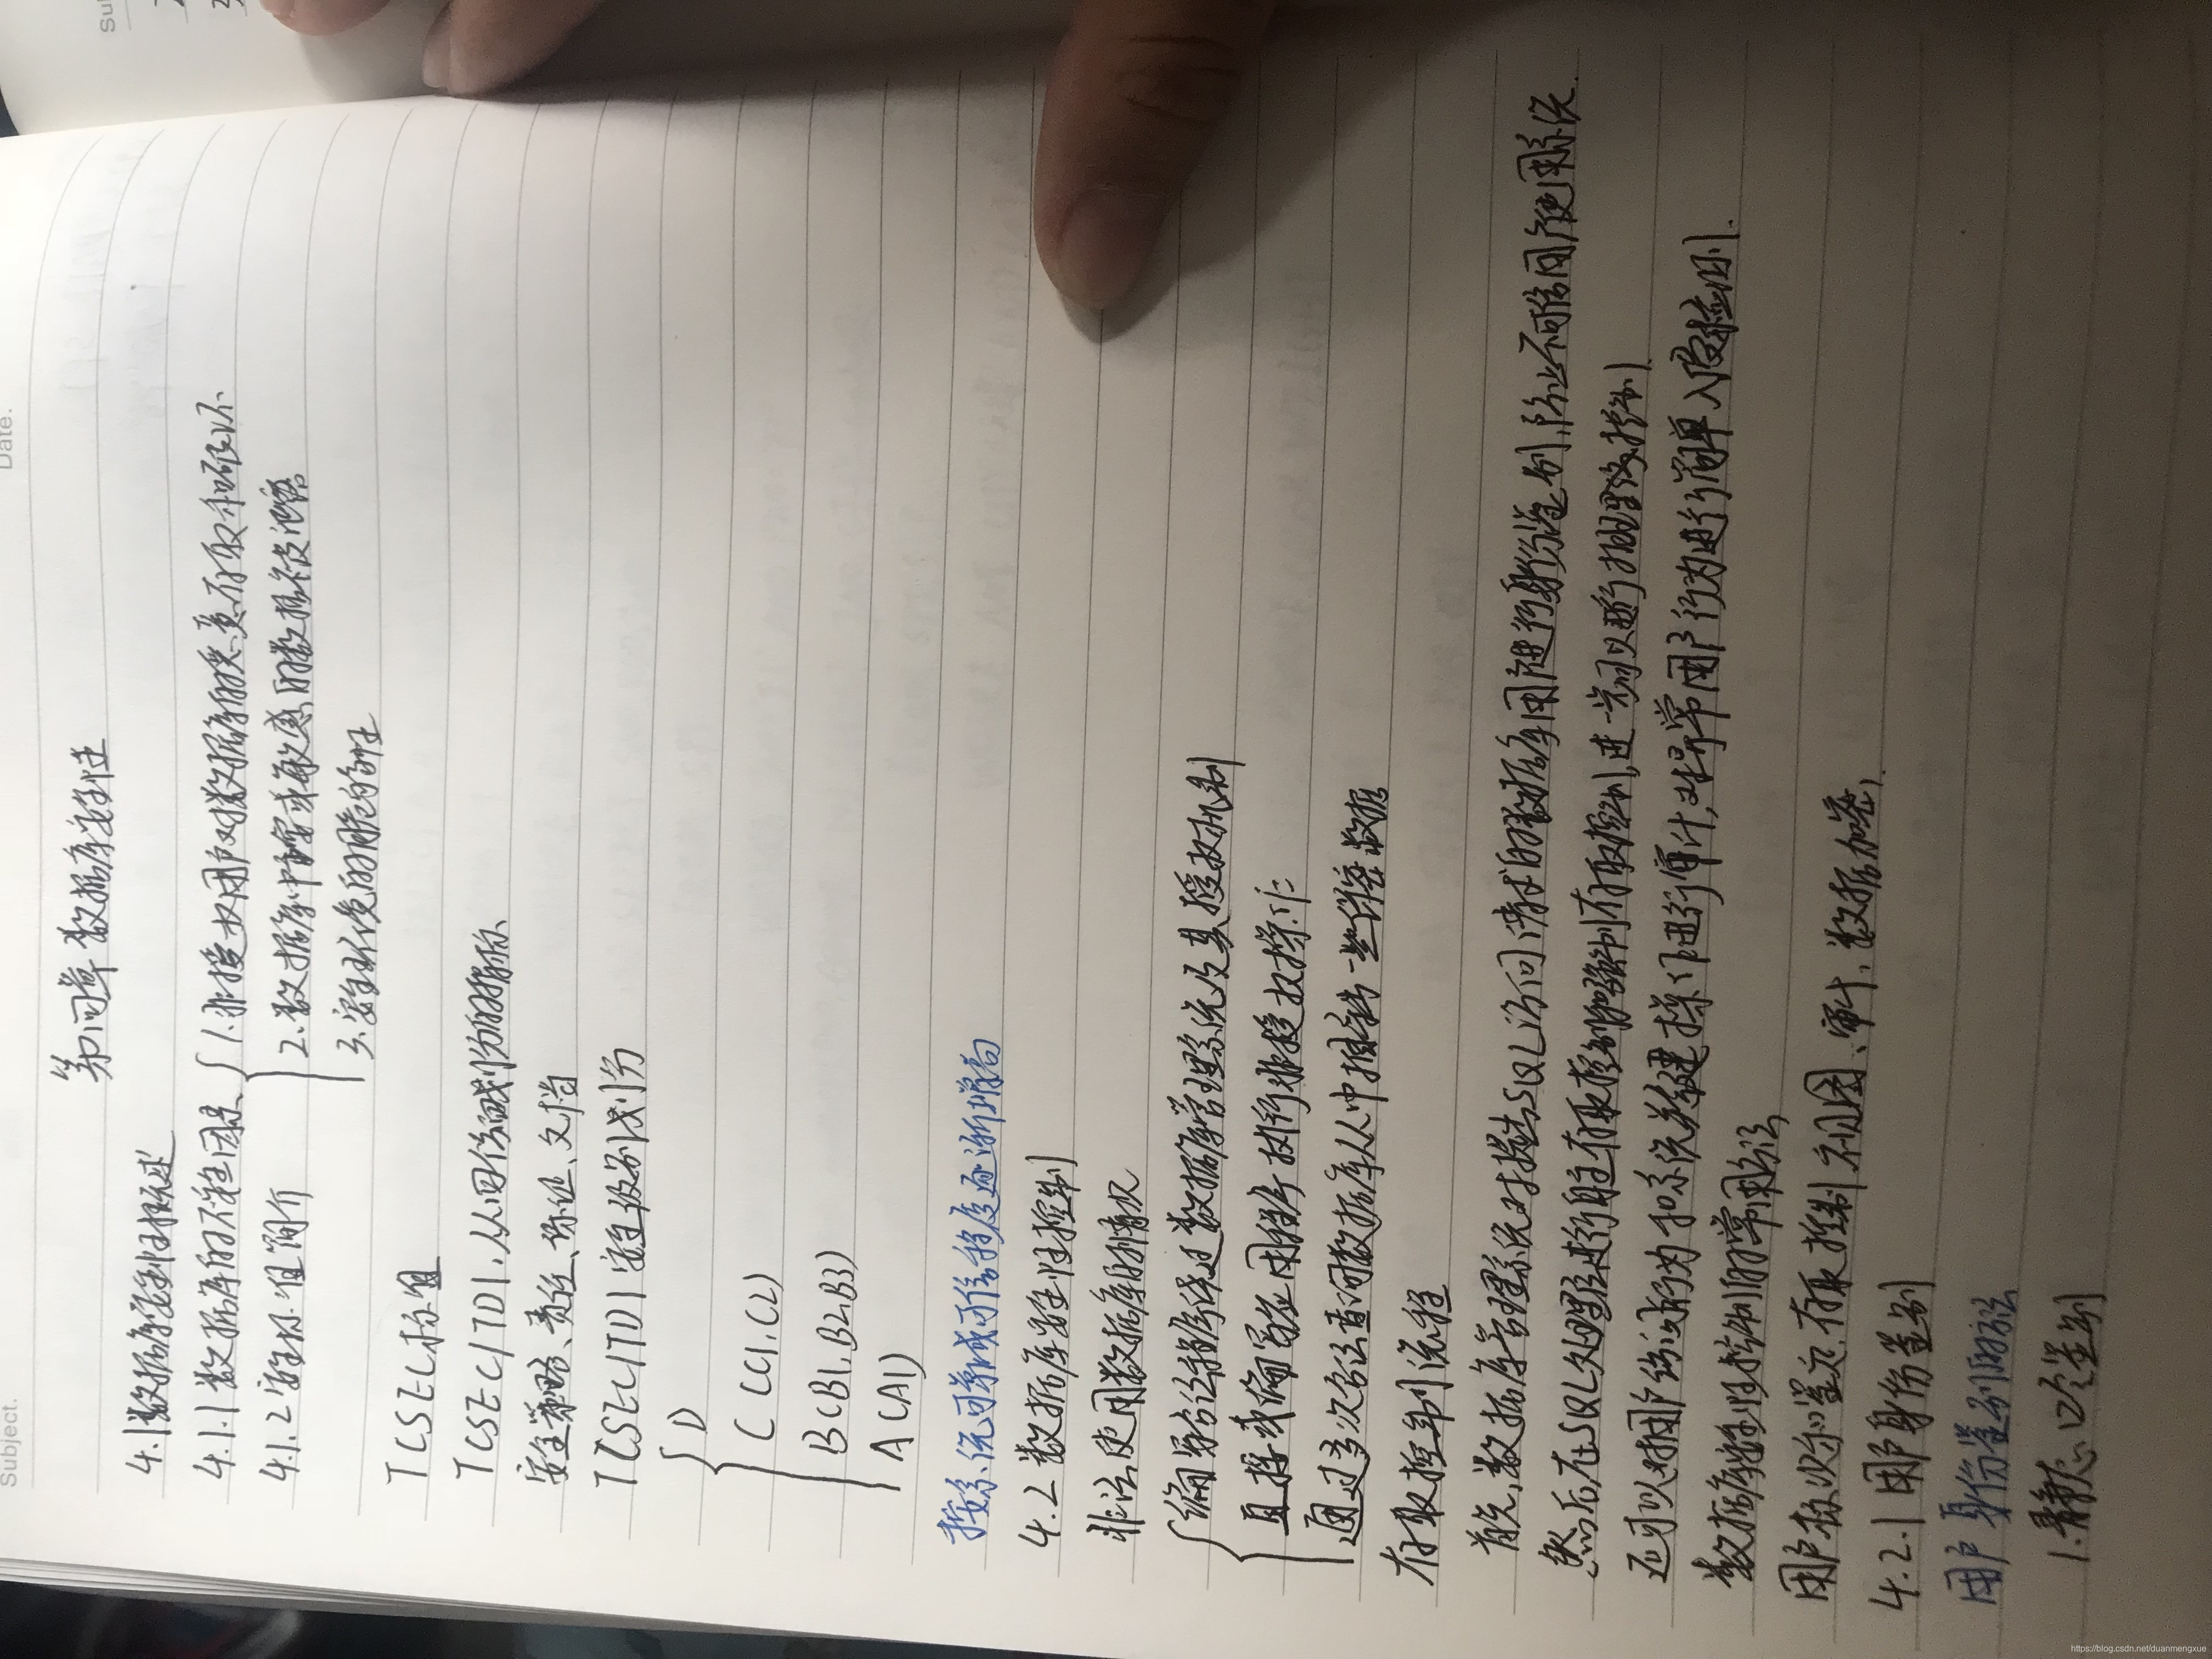 Subject.
Date.
第四章 数据库安全性
4.1数据库安全性概述
4.1.1 数据库的不安全因素 1.非授权用户对数据库的恶意存取和破坏
2.数据库中重要或敏感的数据被泄露
4.1.2 安全标准简介
3.安全环境的脆弱性
TCSEC标准
TCSEC/TDI,从四个方面划分的指标
安全策略、责任、保证、文档
TCSEC/TDI 安全级别划分
D
C(C1,C2)
B(B1,B2,B3)
A(A1)
按系统可靠或可信程度逐渐增高
4.2 数据库安全性控制
非法使用数据库的情况
编写合法程序绕过数据库管理系统及其授权机制
直接或编写应用程序执行非授权操作
通过多次合法查询数据库从中推导一些保密数据
存取控制流程
首先,数据库管理系统对提出SQL访问请求的数据库用户进行身份鉴别,防止不可信用户使用系统.
然后,在SQL处理层进行自主存取控制和强制存取控制,进一步可以进行推理控制
还可以对用户访问行为和系统关键操作进行审计,对异常用户行为进行简单入侵检测.
数据库安全性控制的常用方法
用户标识和鉴定、存取控制、视图、审计、数据加密.
4.2.1 用户身份鉴别
用户身份鉴别的方法
1.静态口令鉴别
https://blog.csdn.net/duanmengxue